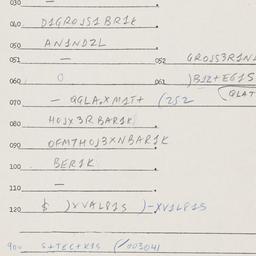 030 —
040 D1GROJS1BR1K
050 AN1ND2L
051 — 052 GROJS3R1N
060 O 061 )BJ2+EG1S
(QLAT
070 — QGLA,XM1T+ (252
080 HOJX3RBAR1K
090 OFM7HOJ3XNBAR1K
100 BER1K
110 —
120 $ )XVAL81S )-XV1L81S
900 S+TEC+K1S (/003041